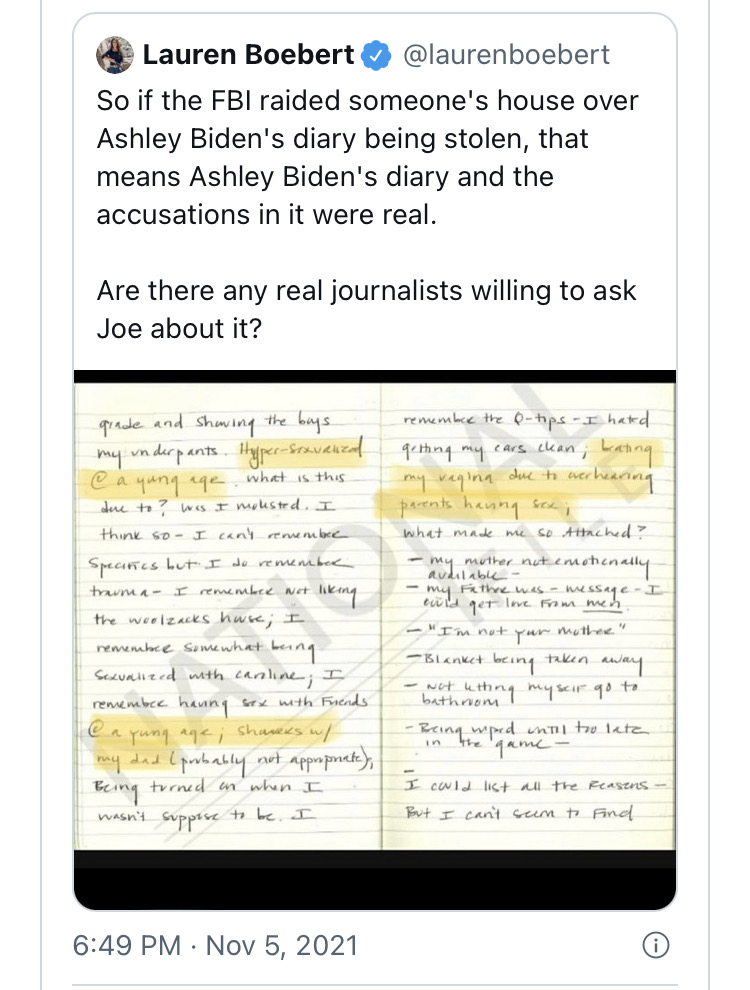 Lauren Boebert @laurenboebert
So if the FBI raided someone's house over
Ashley Biden's diary being stolen, that
means Ashley Biden's diary and the
accusations in it were real.
Are there any real journalists willing to ask
Joe about it?
grade and showing the boys
my underpants. Hyper-sexualized
@ a yung age. what is this
due to? was I molested. I
think so - I can't remember
specifics but I do remember
trauma - I remember not liking
the woolzacks house; I
remember somewhat being
sexualized with caroline; I
remember having sex with friends
@ a yung age; showers w/
my dad (probably not appropriate),
Being turned on when I
wasn't suppose to be. I
remember the Q-tips - I hated
getting my ears clean;
my vagina due to overhearing
parents having sex;
what made me so Attached?
- my mother not emotionally
available -
- my Father was - message - I
could get love from men.
- "I'm not your mother"
- Blanket being taken away
- not letting myself go to
bathroom
- Being wiped until too late
in the game -
-
I could list all the Reasons -
But I can't seem to Find
NATIONAL FILE
6:49 PM · Nov 5, 2021